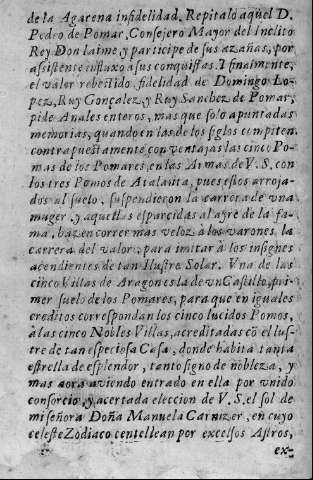 de la Agarena infidelidad. Repitalo aquel D.
Pedro de Pomar, Consejero Mayor del Inclito
Rey Don Iaime, y participe de sus azañas, por
assistente influxo à sus conquistas. Y finalmente,
el valor fidelidad de Domingo Lo-
pez, Ruy Gonçalez, y Ruy Sanchez de Pomar,
pide Anales enteros, mas que solo apuntadas
memorias, quando en las de los siglos compiten
contrapuestamente con ventajas las cinco Po-
mas de los Pomares, en las Armas de V. S. con
los tres Pomos de Atalanta, pues estos arroja-
dos al suelo, suspendieron la carrera de vna
muger, y aquellas esparcidas al ayre de la fa-
ma, hazen correr mas veloz à los varones, la
carrera del valor, para imitar à los insignes
acendientes de tan Ilustre Solar. Vna de las
cinco Villas de Aragon es la de vn Castillo, pri-
mer suelo de los Pomares, para que en iguales
creditos correspondan los cinco lucidos Pomos,
à las cinco Nobles Villas, acreditadas cõ el lus-
tre de tan especiosa Casa, donde habita tanta
estrella de esplendor, tanto signo de nobleza, y
mas aora aviendo entrado en ella por vnido
consorcio, y acertada eleccion de V. S. el sol de
mi señora Doña Manuela Carnizer, en cuyo
celeste Zodiaco centellean por excelsos Astros,
ex-